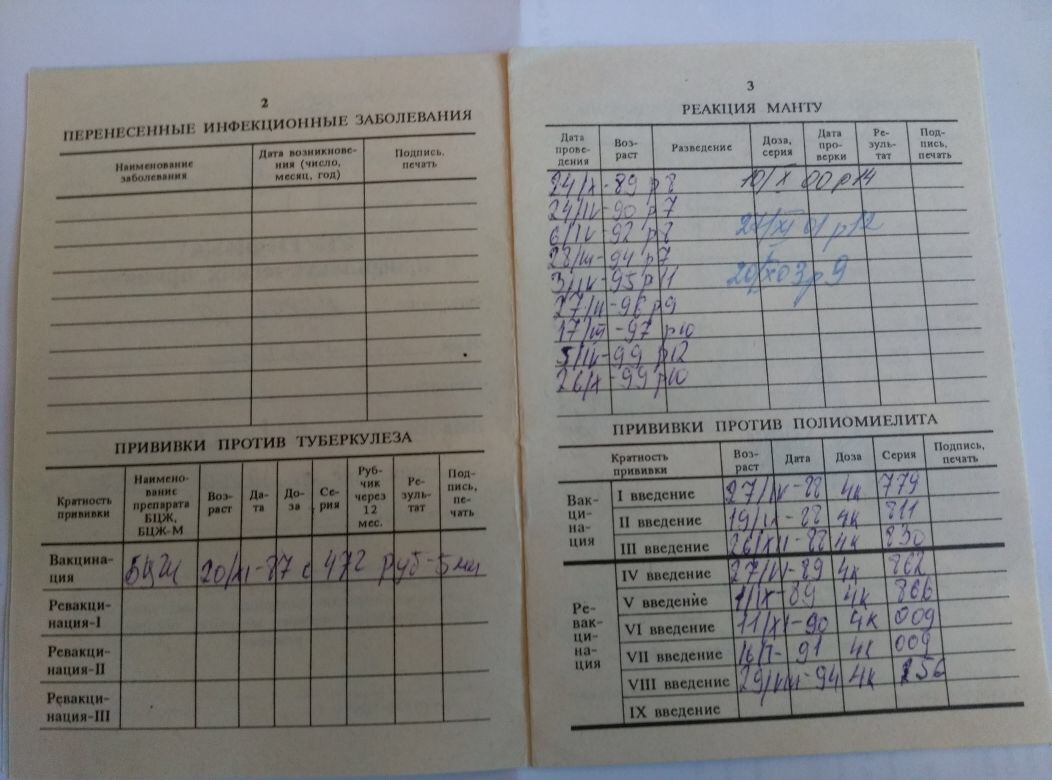 2
ПЕРЕНЕСЕННЫЕ ИНФЕКЦИОННЫЕ ЗАБОЛЕВАНИЯ
Наименование заболевания Дата возникнове- ния (число, месяц, год) Подпись, печать
ПРИВИВКИ ПРОТИВ ТУБЕРКУЛЕЗА
Кратность прививки Наимено- вание препарата БЦЖ, БЦЖ-М Воз- раст Да- та До- за Се- рия Руб- чик через 12 мес. Ре- зуль- тат Под- пись, пе- чать
Вакцина- ция БЦЖ 20/XI-87 с 472 руб-5мм
Ревакци- нация-I
Ревакци- нация-II
Ревакци- нация-III
3
РЕАКЦИЯ МАНТУ
Дата прове- дения Воз- раст Разведение Доза, серия Дата про- верки Ре- зуль- тат Под- пись, печать
24/X-89 р8 10/X 00 р14
24/IV-90 р7
6/IV-92 р8 24/XI 01 р12
28/III-94 р7
3/IV-95 р11 20/X 03 р9
27/II-96 р9
17/III-97 р10
5/IV-99 р12
26/X-99 р10
ПРИВИВКИ ПРОТИВ ПОЛИОМИЕЛИТА
Кратность прививки Воз- раст Дата Доза Серия Подпись, печать
Вак- ци- на- ция
I введение 27/IX-88 4к 779
II введение 4к 811
III введение 26/XII-88 4к 830
Ре- вак- ци- на- ция
IV введение 4к 862
V введение 1/IX-89 4к 866
VI введение 11/XI-90 4к 009
VII введение 91 4к 009
VIII введение 29/VIII-94 4к 256
IX введение